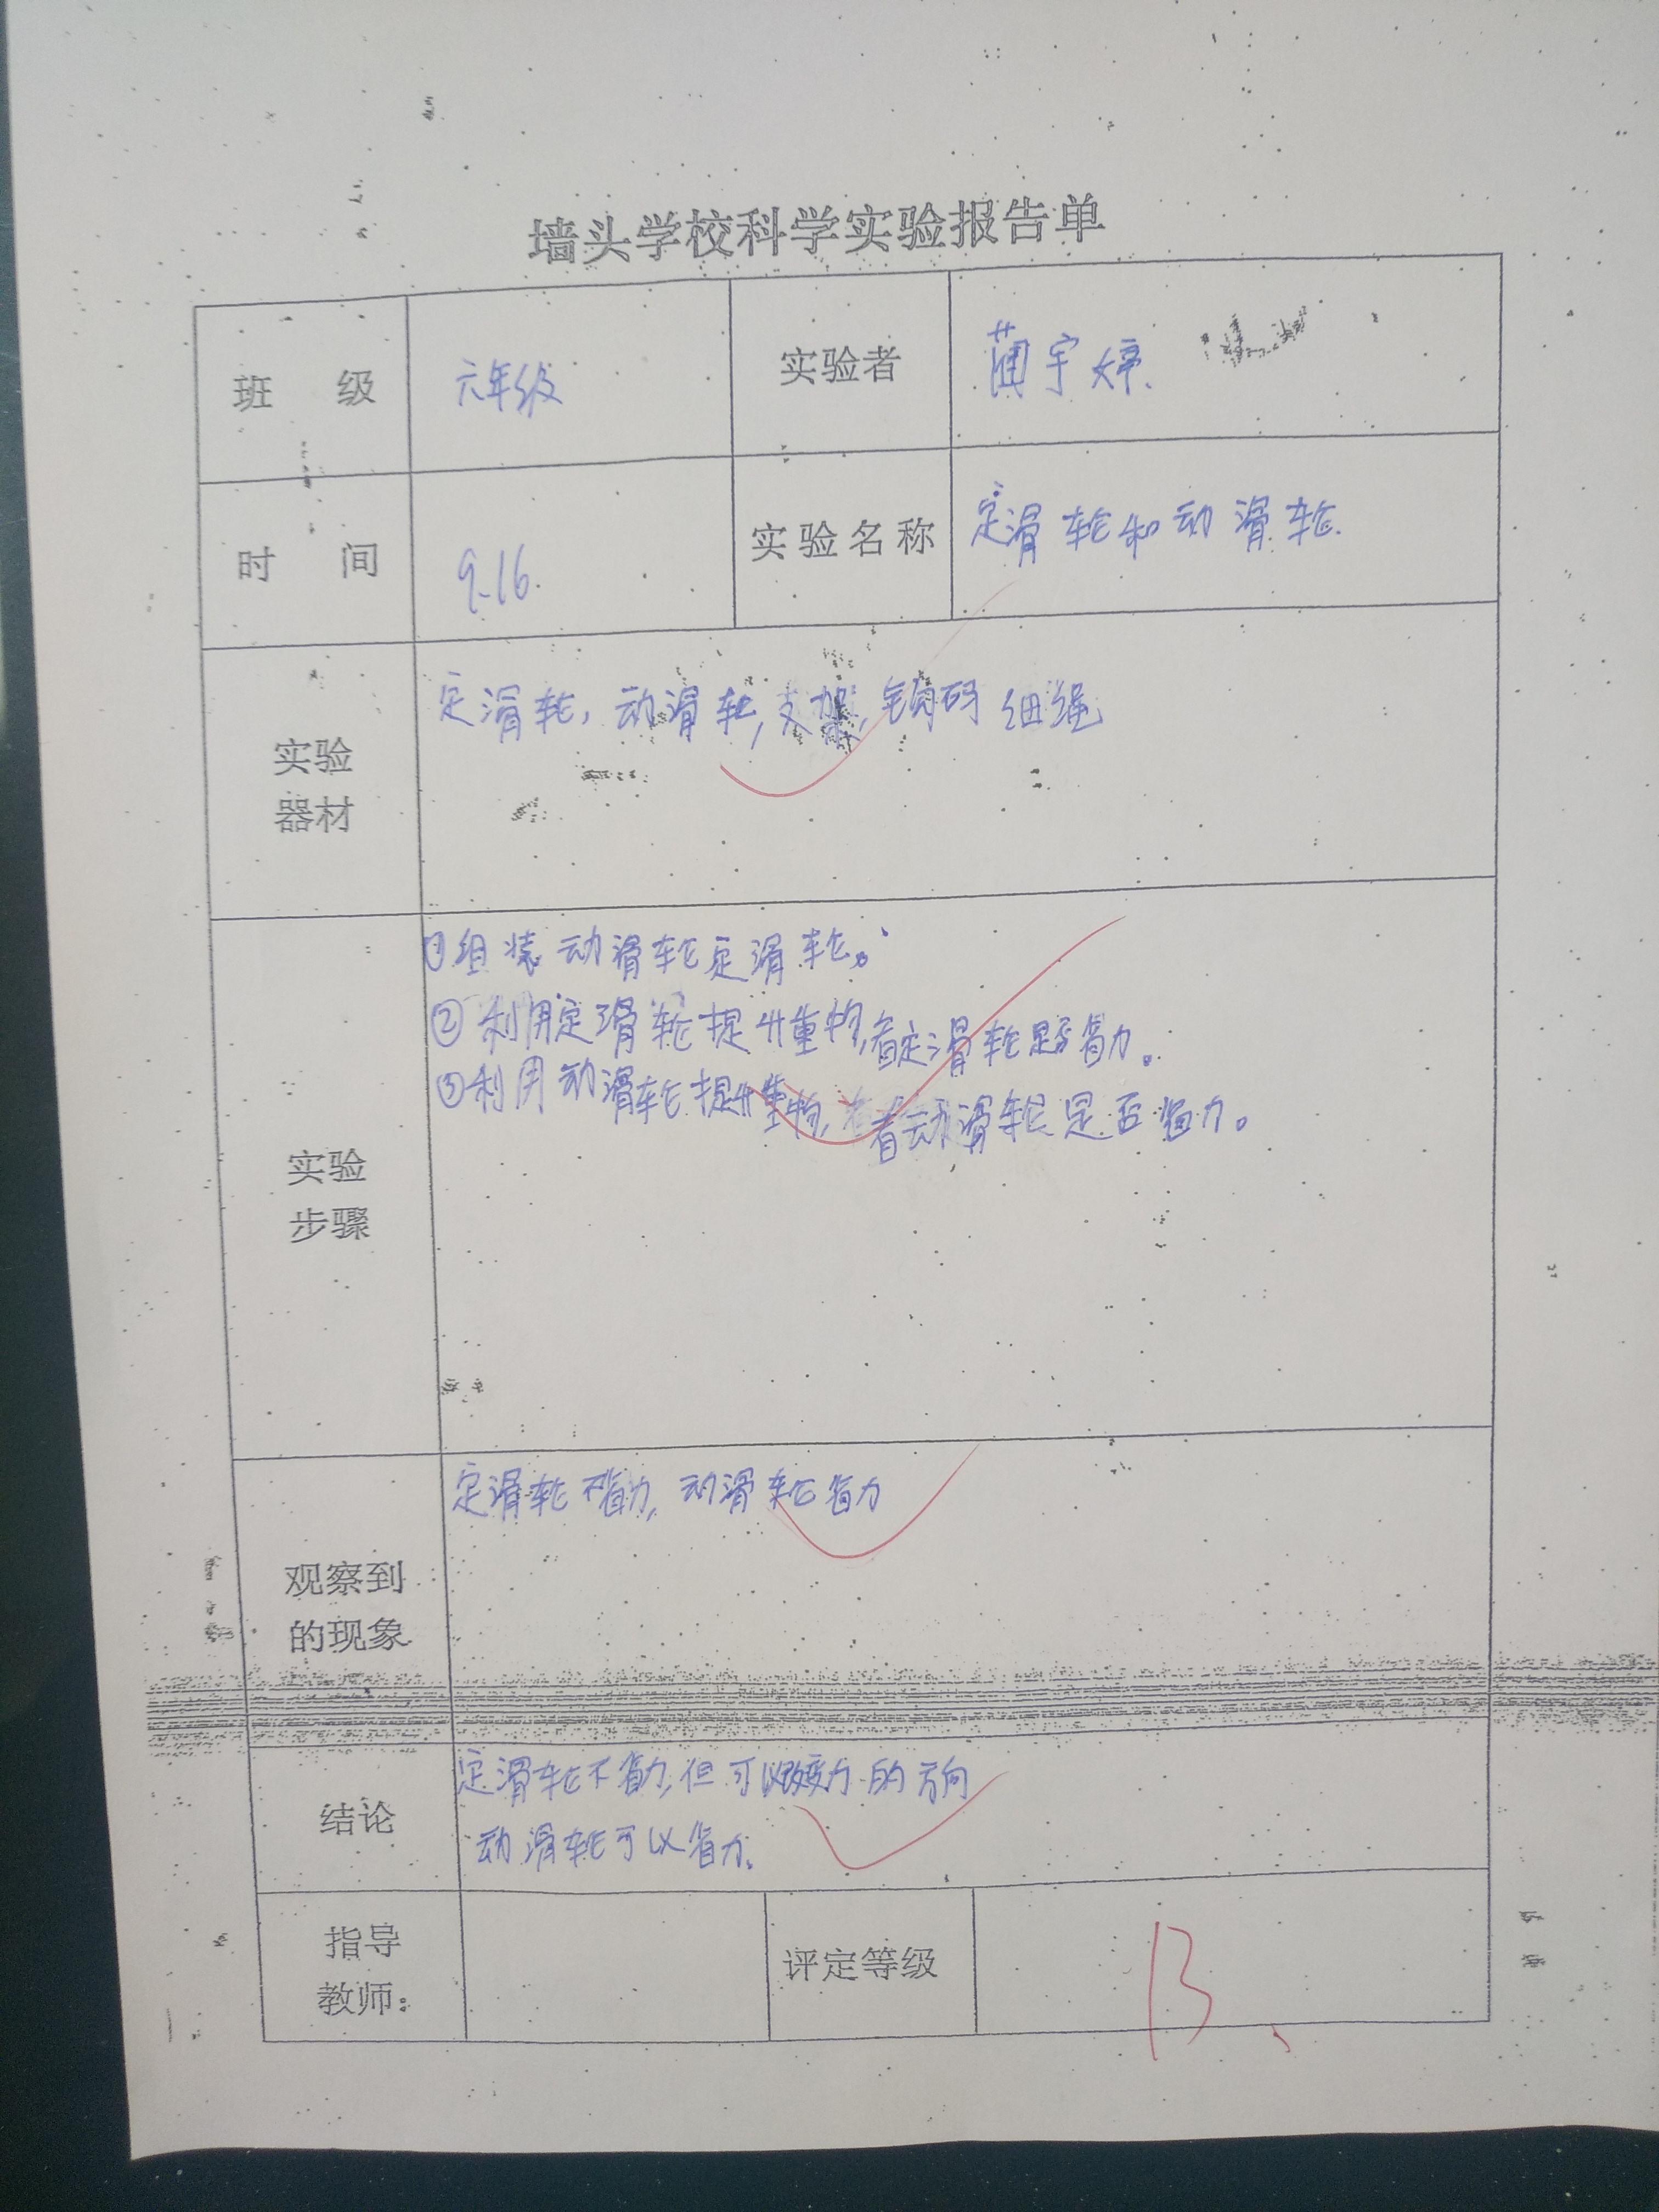 墙头学校科学实验报告单
班 级 六年级 实验者 蔺宇婷
时 间 9.16. 实验名称 定滑轮和动滑轮.
实验
器材
定滑轮, 动滑轮, 支架, 钩码 细绳
实验
步骤
①组装动滑轮定滑轮。
②利用定滑轮提升重物,看定滑轮是否省力。
③利用动滑轮提升重物,看动滑轮是否省力。
观察到
的现象
定滑轮不省力, 动滑轮省力
结论
定滑轮不省力,但可以改变力的方向
动滑轮可以省力.
指导
教师:
评定等级 B